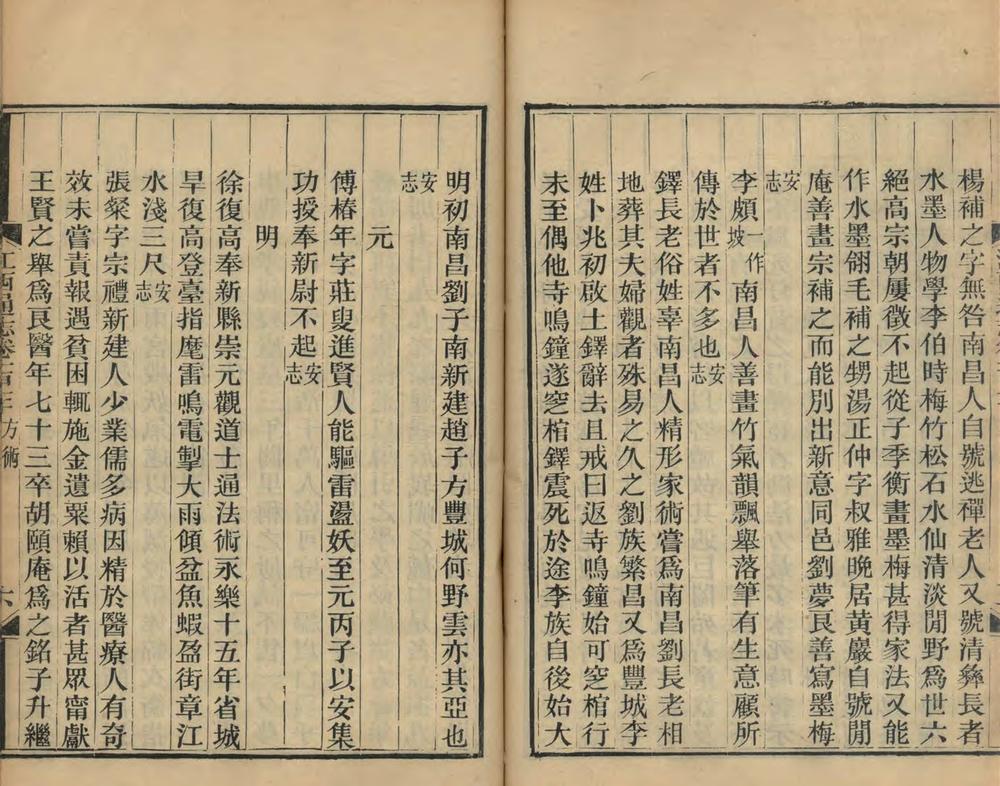 楊補之字無咎南昌人自號逃禪老人又號清彝長者
水墨人物學李伯時梅竹松石水仙清淡閒野爲世六
絕高宗朝屢徵不起從子季衡畫墨梅甚得家法又能
作水墨翎毛補之甥湯正仲字叔雅晚居黃巖自號閒
庵善畫宗補之而能別出新意同邑劉夢良善寫墨梅
安志
李頗一作坡南昌人善畫竹氣韻飄舉落筆有生意顧所
傳於世者不多也安志
鐸長老俗姓辜南昌人精形家術嘗爲南昌劉長老相
地葬其夫婦觀者殊易之久之劉族繁昌又爲豐城李
姓卜兆初啟土鐸辭去且戒曰返寺鳴鐘始可窆棺行
未至偶他寺鳴鐘遂窆棺鐸震死於途李族自後始大
明初南昌劉子南新建趙子方豐城何野雲亦其亞也
安志
元
傅椿年字莊叟進賢人能驅雷盪妖至元丙子以安集
功授奉新尉不起安志
明
徐復高奉新縣崇元觀道士通法術永樂十五年省城
旱復高登臺指麾雷鳴電掣大雨傾盆魚蝦盈街章江
水淺三尺安志
張粲字宗禮新建人少業儒多病因精於醫療人有奇
效未嘗責報遇貧困輒施金遺粟賴以活者甚眾甯獻
王賢之舉爲良醫年七十三卒胡頤庵爲之銘子升繼
江西通志卷 方術 六